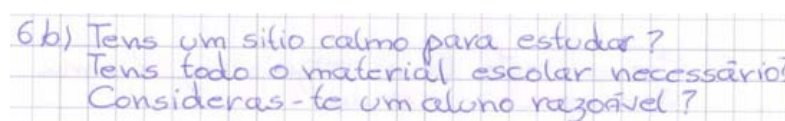 6b) Tens um sitio calmo para estudar?
Tens todo o material escolar necessário?
Consideras-te um aluno razoável?